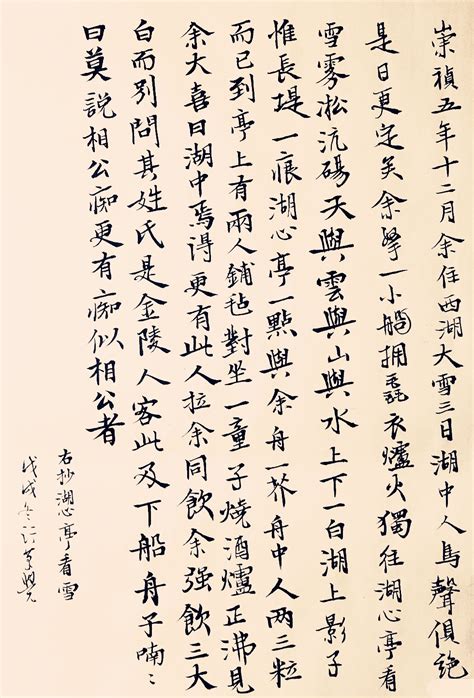 崇禎五年十二月余住西湖大雪三日湖中人鳥聲俱絶
是日更定矣余拏一小船拥毳衣爐火獨往湖心亭看
雪霧凇沆碭天與雲與山與水上下一白湖上影子
惟長堤一痕湖心亭一點與余舟一芥舟中人两三粒
而已到亭上有兩人鋪氈對坐一童子燒酒爐正沸見
余大喜曰湖中焉得更有此人拉余同飲余强飲三大
白而別問其姓氏是金陵人客此及下船舟子喃〻
曰莫說相公痴更有痴似相公者
右抄湖心亭看雪
戊戌冬